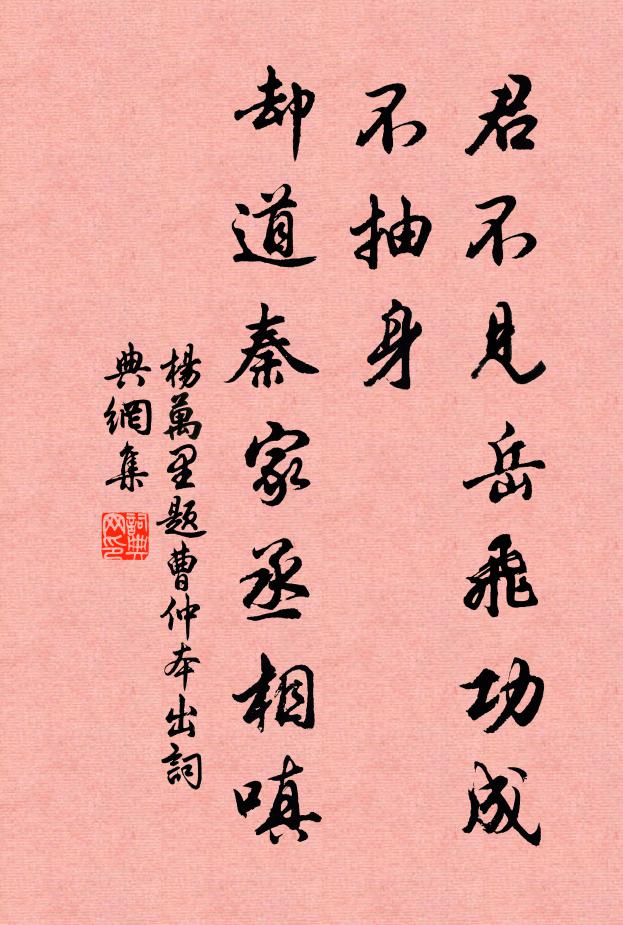 君不見岳飛功成
不抽身
却道秦家丞相嗔
楊萬里題曹仲本出詞
典網集
詞典
网印